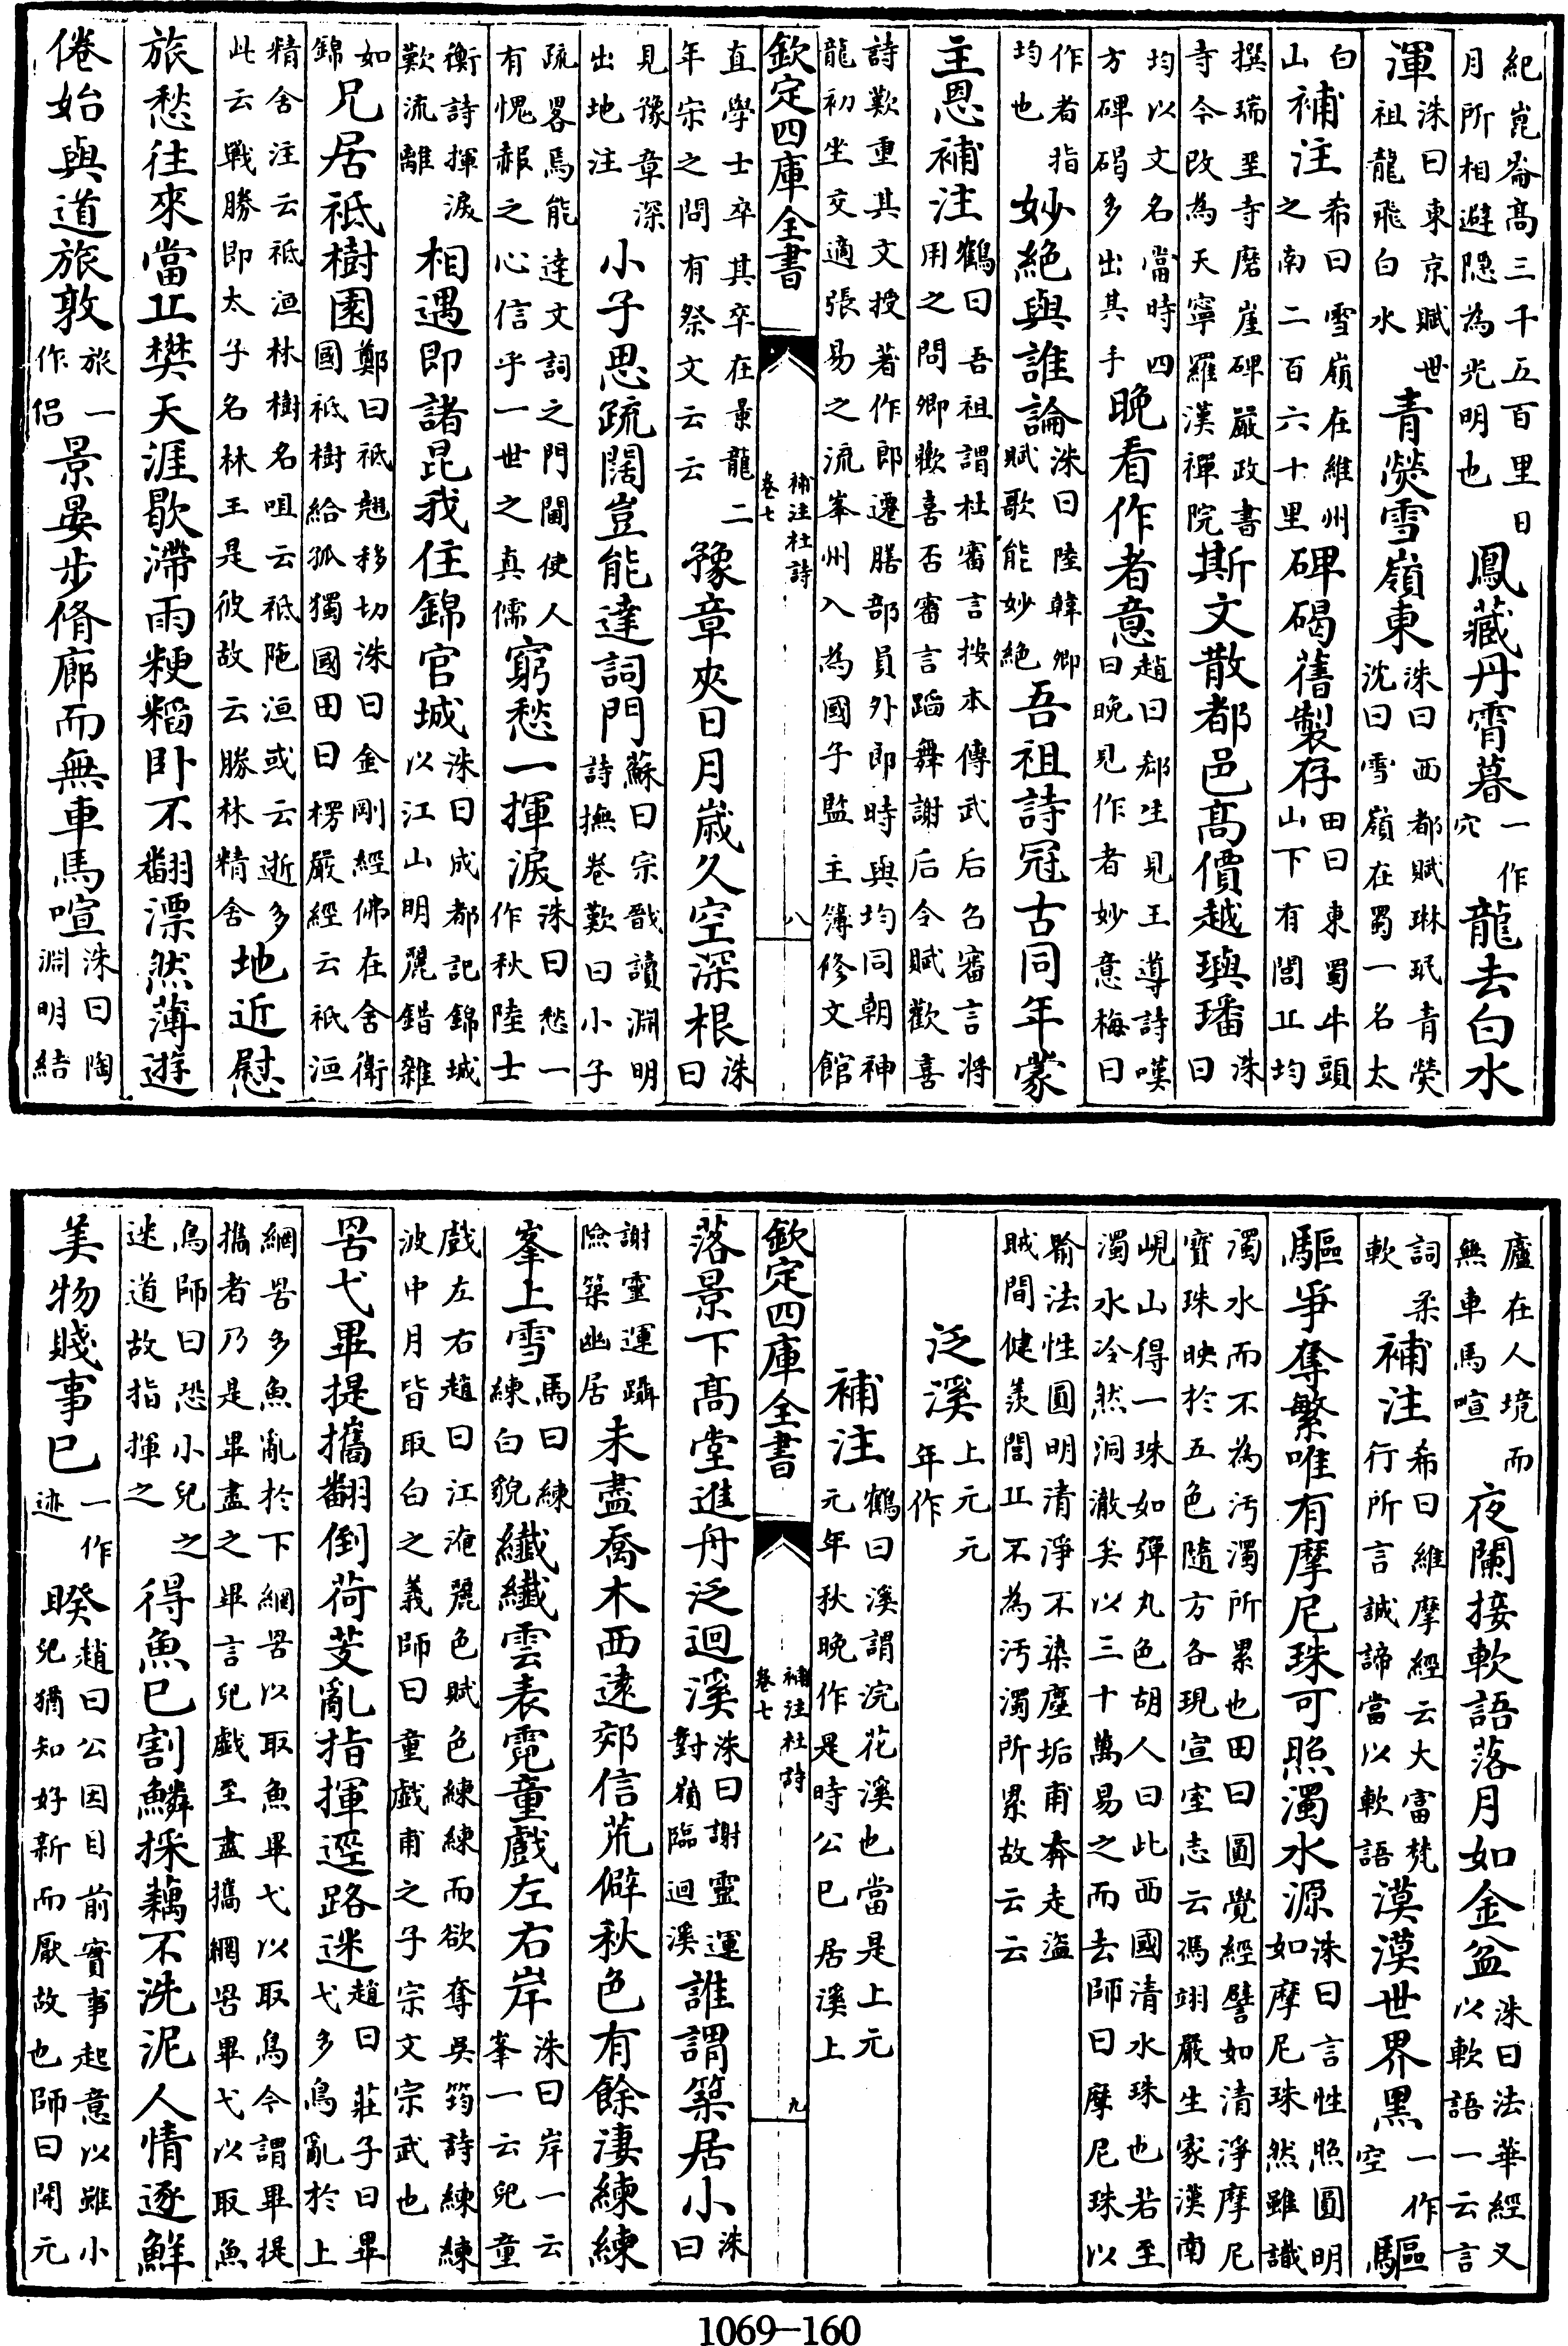 紀崑崙高三千五百里日
月所相避隱為光明也
鳳藏丹霄暮
一作
穴
龍去白水
渾
洙曰東京賦世
祖龍飛白水
青熒雪嶺東
洙曰西都賦琳珉青熒
沈曰雪嶺在蜀一名太
白
山
補注
希曰雪嶺在維州
之南二百六十里
碑碣舊製存
田曰東蜀牛頭
山下有閭丘均
撰瑞聖寺磨崖碑嚴政書
寺今改為天寧羅漢禪院
斯文散都邑高價越璵璠
洙
曰
均以文名當時四
方碑碣多出其手
晚看作者意
趙曰郄生見王導詩嘆
曰晚見作者妙意梅曰
作者指
均也
妙絶與誰論
洙曰陸韓卿
賦歌能妙絶
吾祖詩冠古同年蒙
主恩補注
鶴曰吾祖謂杜審言按本傳武后召審言將
用之問卿歡喜否審言蹈舞謝后令賦歡喜
詩歎重其文授著作郎遷膳部員外郎時與均同朝神
龍初坐交適張易之流峯州入為國子監主簿修文館
欽定四庫全書
補注杜詩
卷七
八
直學士卒其卒在景龍二
年宋之問有祭文云云
豫章夾日月嵗久空深根
洙
曰
見豫章深
出地注
小子思疏闊豈能達詞門
蘇曰宗戩讀淵明
詩撫卷歎曰小子
疏畧馬能達文詞之門閫使人
有愧赧之心信乎一世之真儒
窮愁一揮淚
洙曰愁一
作秋陸士
衡詩揮淚
歎流離
相遇即諸昆我住錦官城
洙曰成都記錦城
以江山明麗錯雜
如
錦
兄居祇樹園
鄭曰祇翹移切洙曰金剛經佛在舍衛
國祇樹給孤獨國田曰楞嚴經云祇洹
精舍注云祇洹林樹名咀云祇陁洹或云逝多
此云戰勝即太子名林王是彼故云勝林精舍
地近慰
旅愁往來當丘樊天涯歇滯雨粳稻卧不翻漂然薄遊
倦始與道旅敦
旅一
作侣
景晏步脩廊而無車馬喧
洙曰陶
淵明結
廬在人境而
無車馬喧
夜闌接軟語落月如金盆
洙曰法華經又
以軟語一云言
詞柔
軟
補注
希曰維摩經云大富梵
行所言誠諦當以軟語
漠漠世界黑
一作
空
驅
驅爭奪繁唯有摩尼珠可照濁水源
洙曰言性照圓明
如摩尼珠然雖識
濁水而不為汚濁所累也田曰圓覺經譬如清淨摩尼
寳珠映於五色隨方各現宣室志云馮翊嚴生家漢南
峴山得一珠如彈丸色胡人曰此西國清水珠也若至
濁水泠然洞澈矣以三十萬易之而去師曰摩尼珠以
喻法性圓明清淨不染塵垢甫奔走盜
賊間健羨閭丘不為汚濁所累故云云
泛溪
上元元
年作
補注
鶴曰溪謂浣花溪也當是上元
元年秋晚作是時公已居溪上
欽定四庫全書
補注杜詩
卷七
九
落景下高堂進舟泛迴溪
洙曰謝靈運
對嶺臨迴溪
誰謂築居小
洙
曰
謝靈運躡
險築幽居
未盡喬木西逺郊信荒僻秋色有餘淒練練
峯上雪
馬曰練
練白貌
纎纎雲表霓童戲左右岸
洙曰岸一云
峯一云兒童
戲左右趙曰江淹麗色賦色練練而欲奪吳筠詩練練
波中月皆取白之義師曰童戲甫之子宗文宗武也
罟弋畢提攜翻倒荷芰亂指揮逕路迷
趙曰莊子曰畢
弋多鳥亂於上
網罟多魚亂於下網罟以取魚畢弋以取鳥今謂畢提
攜者乃是畢盡之畢言兒戲至盡攜網罟畢弋以取魚
鳥師曰恐小兒之
迷道故指揮之
得魚已割鱗採藕不洗泥人情逐鮮
美物賤事已
一作
迹
睽
趙曰公因目前實事起意以雖小
兒猶知好新而厭故也師曰開元
1069-160